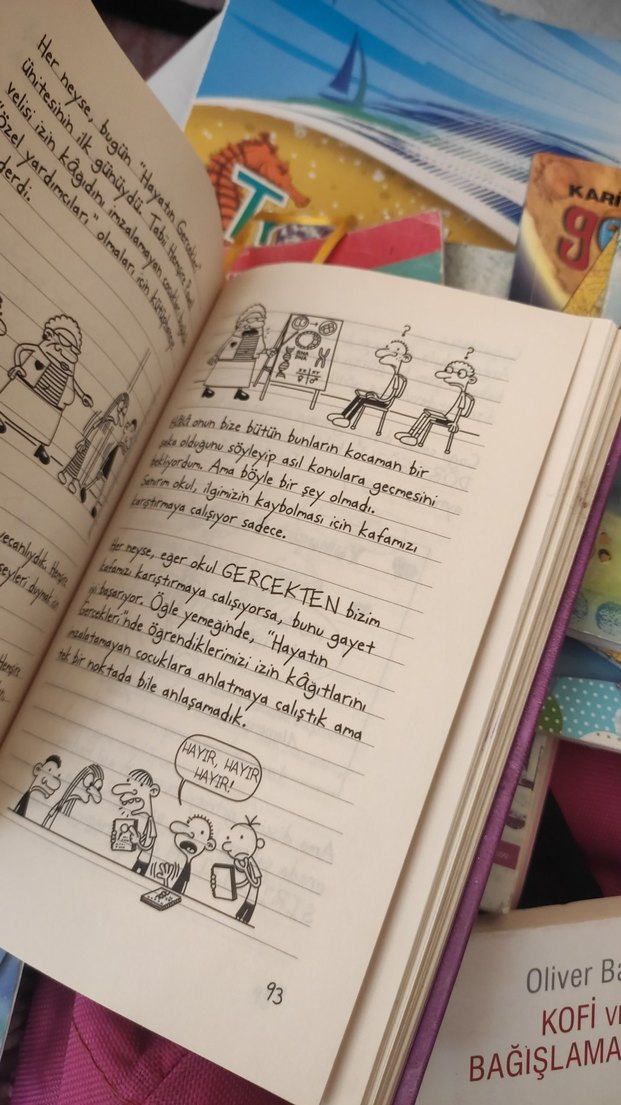 Her neyse, bugün "Hayatın Gerçekleri"
ünitesinin ilk günüydü. Tabii Hemşire Powell
velisi izin kâğıdını imzalamayan çocukları
"özel yardımcıları" olmaları için kütüphaneye
derdi.
?
?
RNA
DNA
XX
XY
HÂLÂ onun bize bütün bunların kocaman bir
şaka olduğunu söyleyip asıl konulara geçmesini
bekliyordum. Ama böyle bir şey olmadı.
Sanırım okul, ilgimizin kaybolması için kafamızı
karıştırmaya çalışıyor sadece.
Her neyse, eğer okul GERÇEKTEN bizim
kafamızı karıştırmaya çalışıyorsa, bunu gayet
iyi başarıyor. Öğle yemeğinde, "Hayatın
Gerçekleri"nde öğrendiklerimizi izin kâğıtlarını
imzalatamayan çocuklara anlatmaya çalıştık ama
tek bir noktada bile anlaşamadık.
HAYIR, HAYIR
HAYIR!
93
KARİ
Oliver Ba
KOFİ
BAĞIŞLAMA